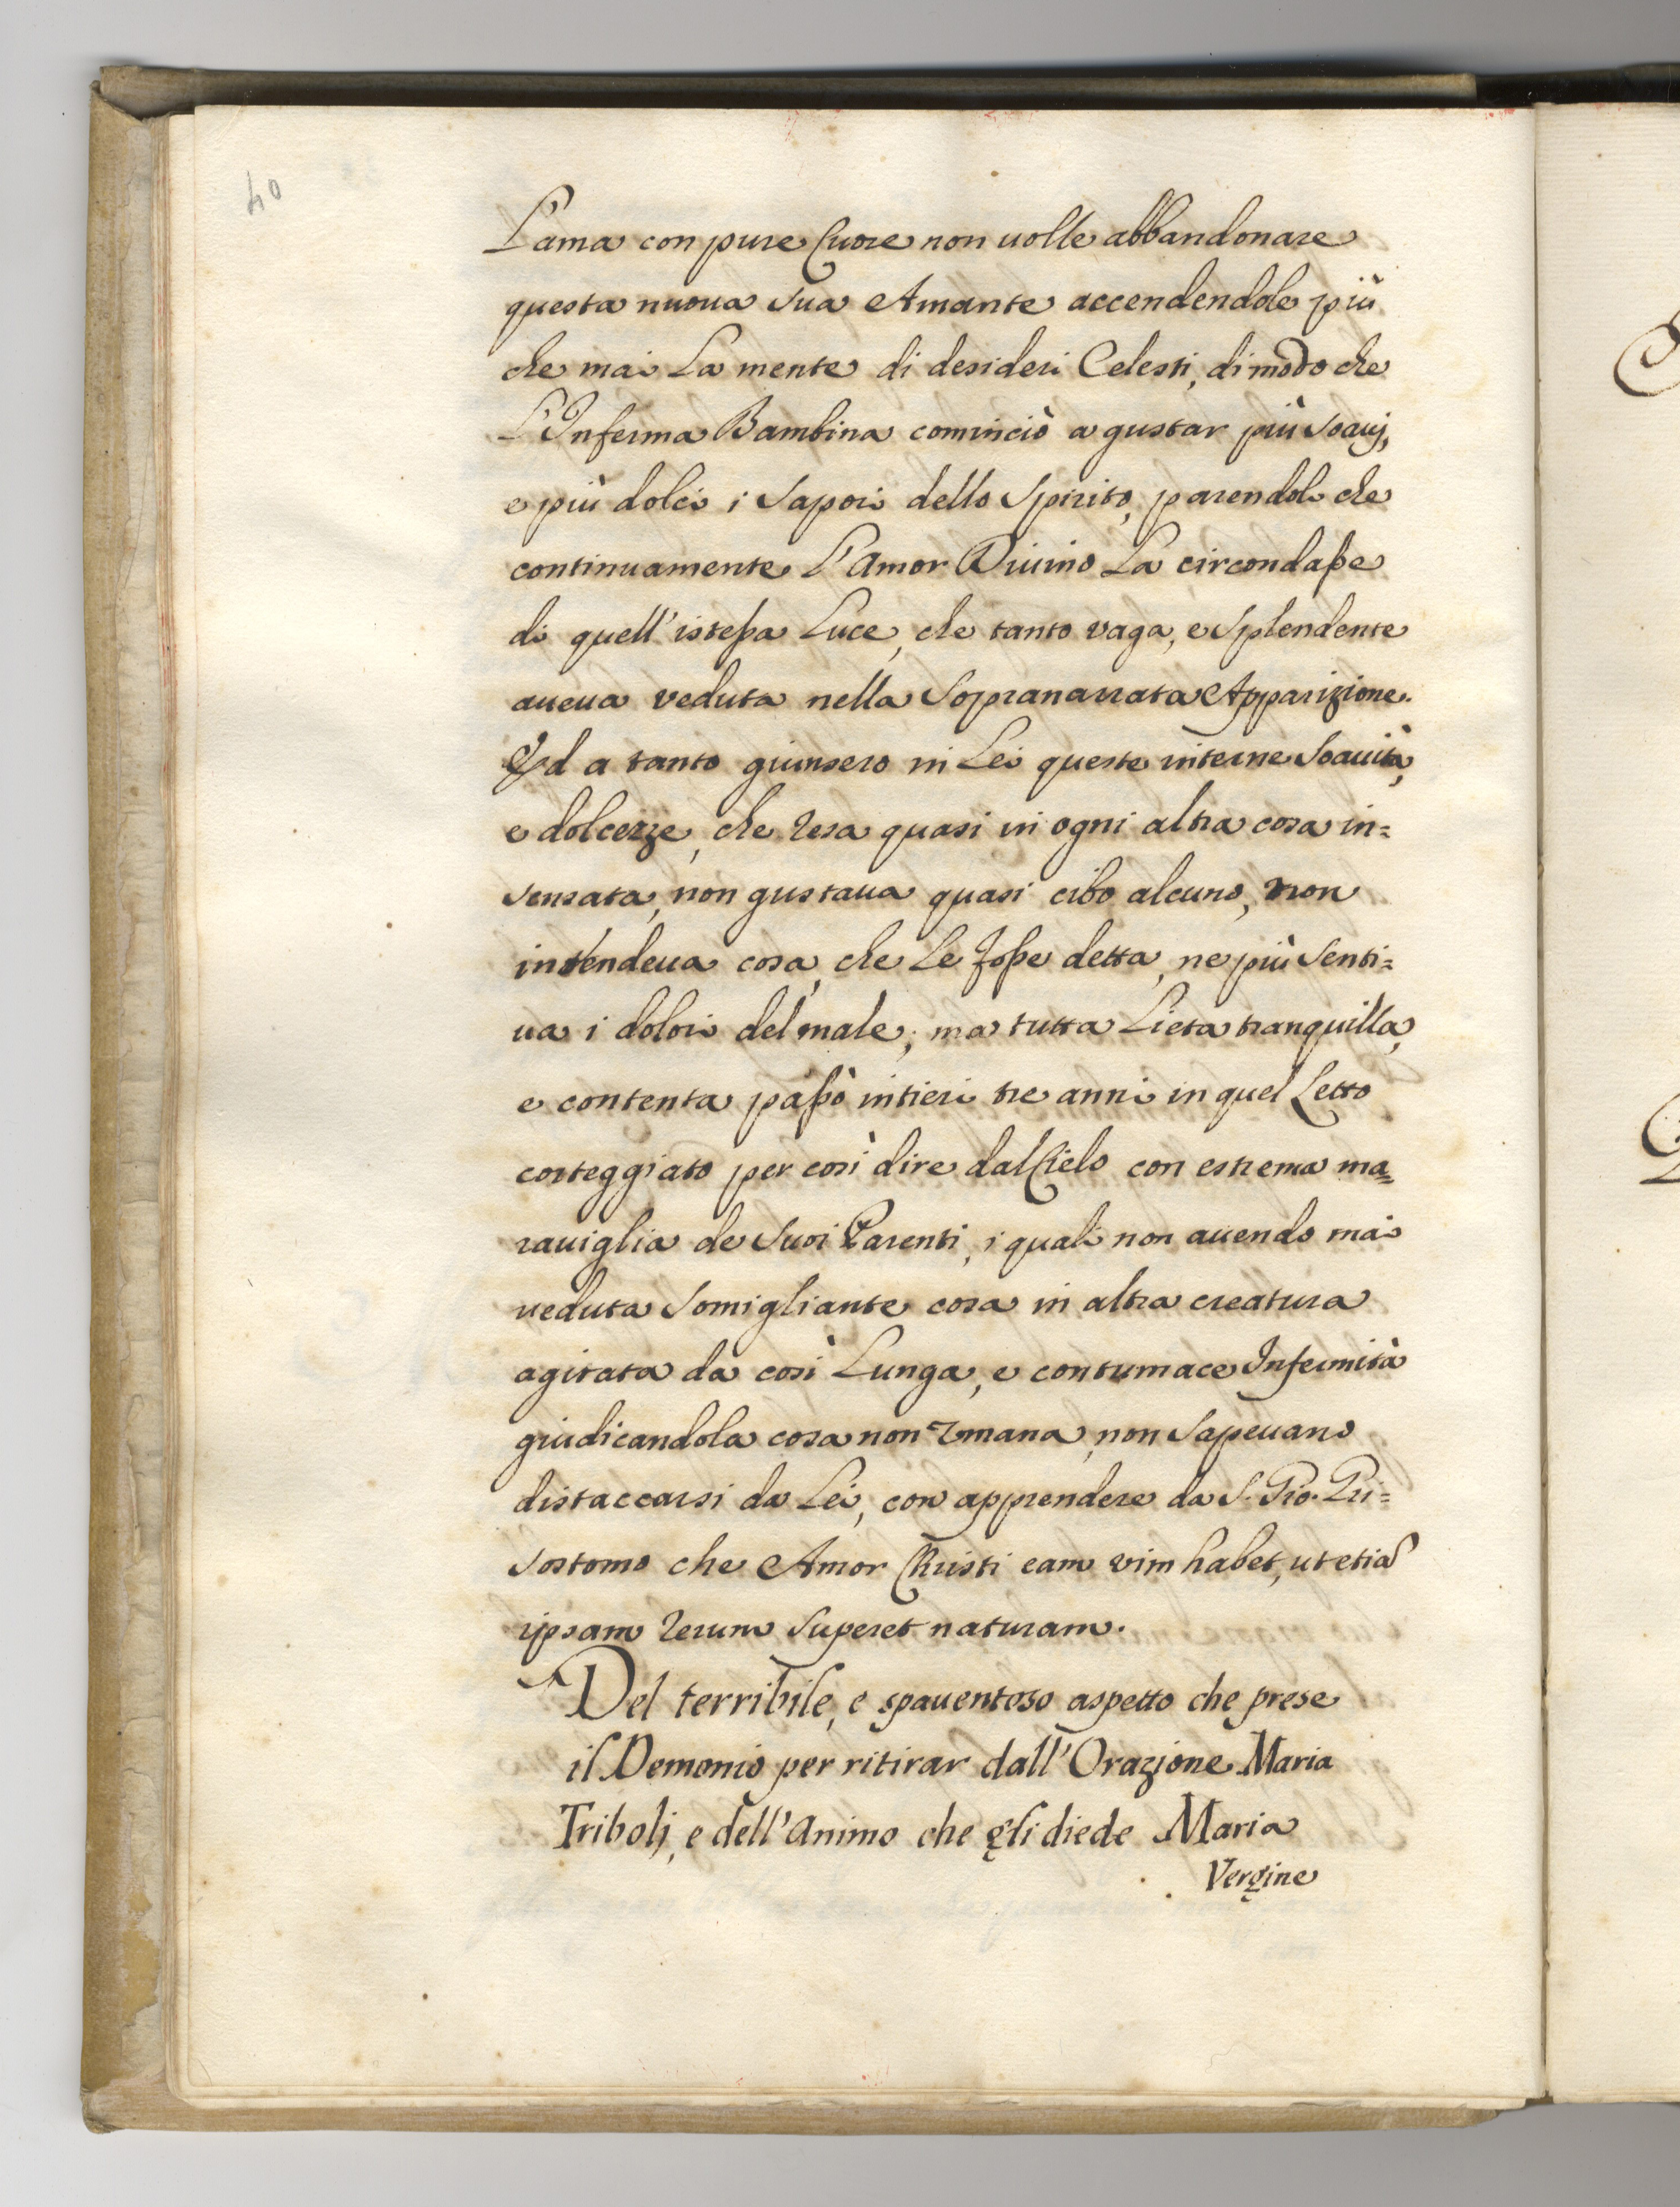 40
L'ama con pure Cuore non uolle abbandonare
questa nuoua sua Amante accendendole più
che mai La mente di desideri Celesti, di modo che
L'Inferma Bambina cominciò a gustar più soaui,
e più dolci i sapori dello Spirito, parendole che
continuamente L'Amor Diuino La circondasse
di quell'istessa Luce, che tanto vaga, e splendente
aueua veduta nella sopranarrata Apparizione.
Ed a tanto giunsero in Lei queste interne soauità,
e dolcezze, che resa quasi in ogni altra cosa in=
sensata, non gustaua quasi cibo alcuno, non
intendeua cosa, che Le fosse detta, ne più senti=
ua i dolori del male; ma tutta Lieta tranquilla,
e contenta passò intieri tre anni in quel Letto
corteggiato per così dire dal Cielo con estrema ma=
rauiglia de suoi Parenti, i quali non auendo mai
ueduta somigliante cosa in altra creatura
agitata da così Lunga, e contumace Infermità
giudicandola cosa non Umana, non sapeuano
distaccarsi da Lei, con apprendere da S. Gio. Gri=
sostomo che Amor Christi eam vim habet, ut etiã
ipsam rerum superet naturam.
Del terribile, e spauentoso aspetto che prese
il Demonio per ritirar dall'Orazione Maria
Triboli, e dell'Animo che gli diede Maria
Vergine